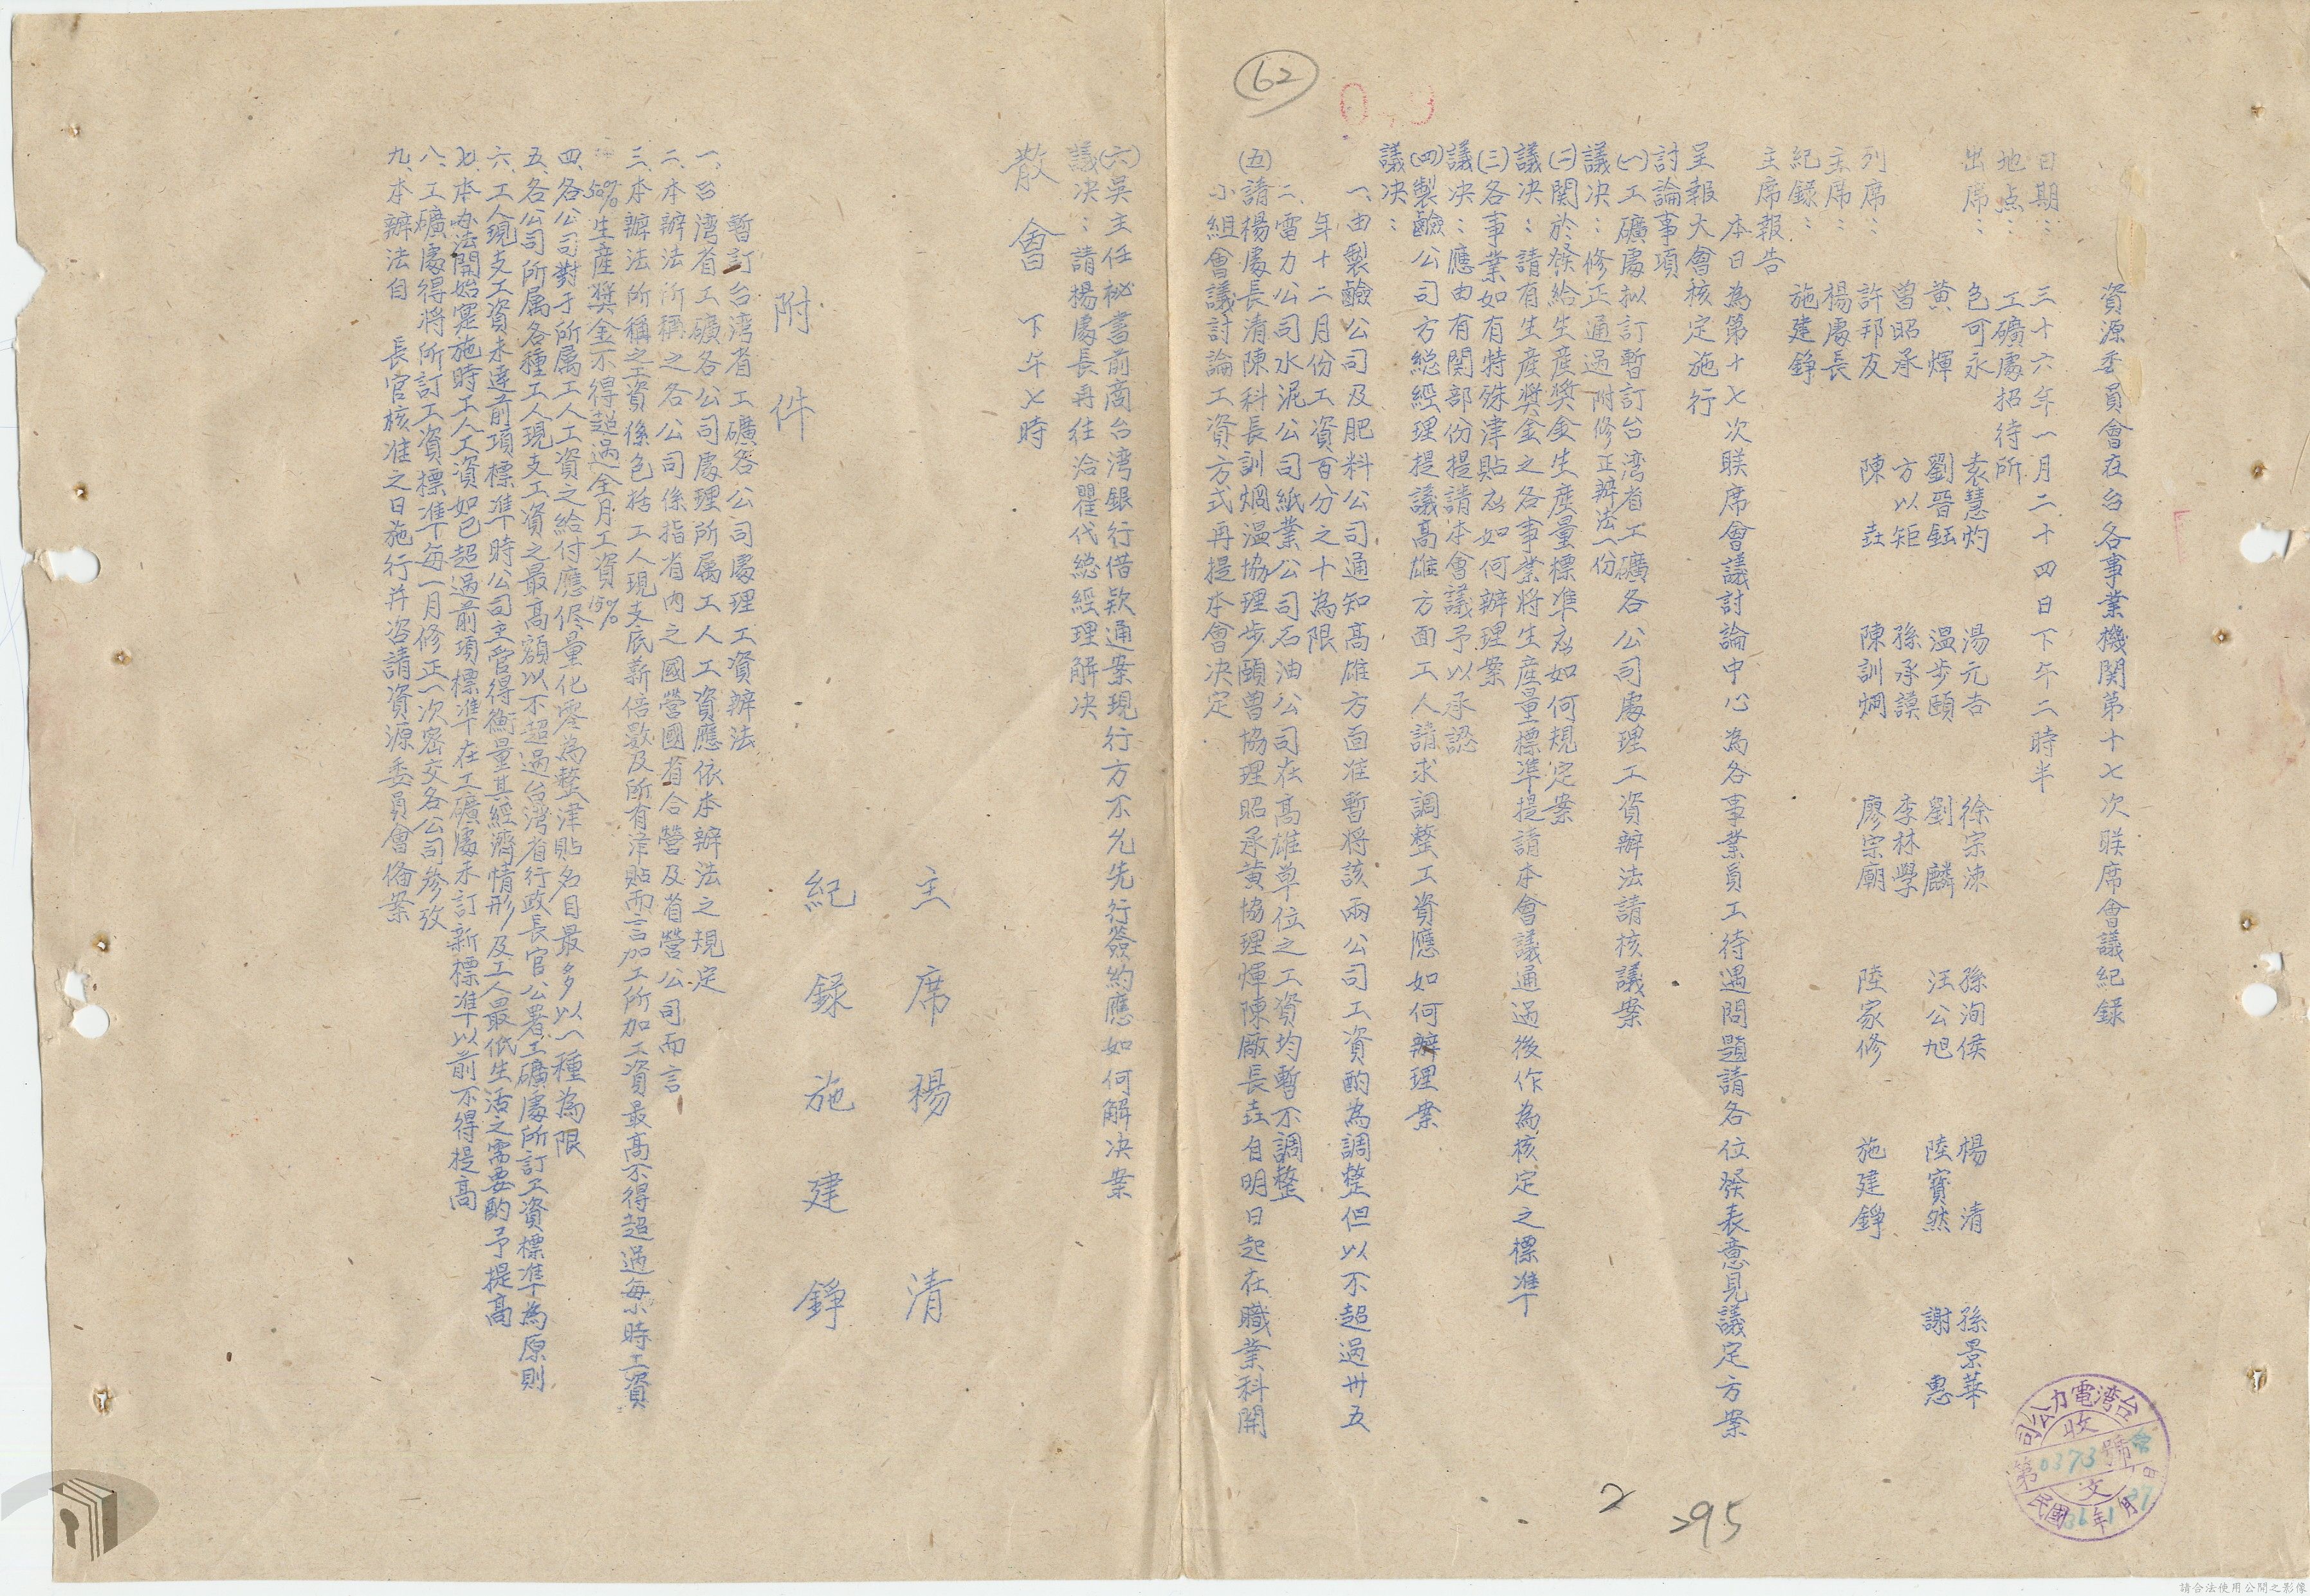 資源委員會在台各事業機関第十七次联席會議紀録
日期：三十六年一月二十四日下午二時半
地点：工礦處招待所
出席：包可永 袁慧灼 湯元吉 徐宗涑 孫洵侯 楊清 孫景華
黄煇 劉晋鈺 温步頤 劉麟 汪公旭 陸寳然 謝惠
曽昭承 方以矩 孫承謨 李林學
列席：許邦友 陳垚 陳訓烱 廖宗廟 陸家修 施建錚
主席：楊處長
紀録：施建錚
主席報告
本日為第十七次联席會議討論中心為各事業員工待遇問題請各位發表意見議定方案
呈報大會核定施行
討論事項
㈠工礦處拟訂暫訂台湾省工礦各公司處理工資辦法請核議案
議决：修正通過附修正辦法一份
㈡関於發給生産奬金生産量標準应如何規定案
議决：請有生産奬金之各事業将生産量標準提請本會議通過後作為核定之標準
㈢各事業如有特殊津貼应如何辦理案
議决：應由有関部份提請本會議予以承認
㈣製鹼公司方総經理提議高雄方面工人請求調整工資應如何辦理案
議决：
一、由製鹼公司及肥料公司通知高雄方面准暫将該兩公司工資酌為調整但以不超過卅五
年十二月份工資百分之十為限
二、電力公司水泥公司紙業公司石油公司在高雄单位之工資均暫不調整
㈤請楊處長清陳科長訓烱温協理步頤曽協理昭承黄協理煇陳廠長垚自明日起在職業科開
小組會議討論工資方式再提本會决定
㈥吴主任祕書前商台湾銀行借款通案現行方不允先行簽約應如何解决案
議决：請楊處長再往洽瞿代総經理解决
散會 下午七時
主席 楊清
紀録 施建錚
附件
暫訂台湾省工礦各公司處理工資辦法
一、台湾省工礦各公司處理所属工人工資應依本辦法之規定
二、本辦法所稱之各公司係指省內之國營國省合營及省營公司而言
三、本辦法所稱之工資係包括工人現支底薪倍數及所有津貼而言加工所加工資最高不得超過每小時工資
50%生産奬金不得超過全月工資15%
四、各公司對于所属工人工資之給付應尽量化零為整津貼名目最多以一種為限
五、各公司所属各種工人現支工資之最高額以不超過台湾省行政長官公署工礦處所訂工資標準為原則
六、工人現支工資未達前項標準時公司主管得衡量其經濟情形及工人最低生活之需要酌予提高
七、本办法開始寔施時工人工資如已超過前項標準在工礦處未訂新標準以前不得提高
八、工礦處得将所訂工資標準每一月修正一次密交各公司參攷
九、本辦法自 長官核准之日施行并咨請資源委員會俻案
62
2
295
台湾電力公司
收文
第0373號
民國36年1月27日
請合法使用公開之影像